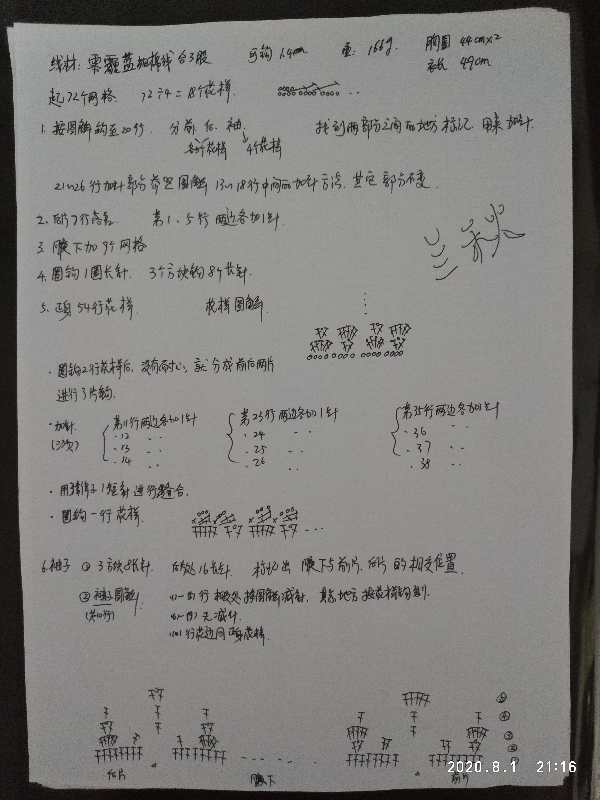 线材: 雾霾蓝 合3股 可钩 1.4mm 重: 166g. 胸围 44cm×2
衣长 49cm
起72个网格. 72÷4 = 18个花样. ...
1. 按图解钩至20行. 分前. 后. 袖. 找到两部分之间的地方标记. 用来加针.
各5个花样 4个花样
21~26行加针部分希望图解13~18行中间的加针方法. 其它部分不变.
2. 后片7行落差. 第1、5行两边各加1针.
3. 腋下加9个网格
4. 圈钩1圈长针. 3个方块钩8个长针.
5. 正身54行花样. 花样图解
· 圈钩2行花样后, 没有耐心, 就分成前后两片
进行了片钩.
· 加针 第11行两边各加1针 第23行两边各加1针 第35行两边各加1针
(3次) · 12 · 24 · 36
· 13 · 25 · 37
· 14 · 26 · 38
· 用辫子1短针进行缝合.
· 圈钩一行花样. ...
6. 袖子 ① 3方块8长针. 后片处16长针. 标记出腋下与前片. 后片的相交位置.
② 袖子图解 按图解减针, 其它地方按花样钩制.
无减针.
行花边同正身花样.
⑤
④
③
②
①
后片 腋下 前片
2020.8.1 21:16